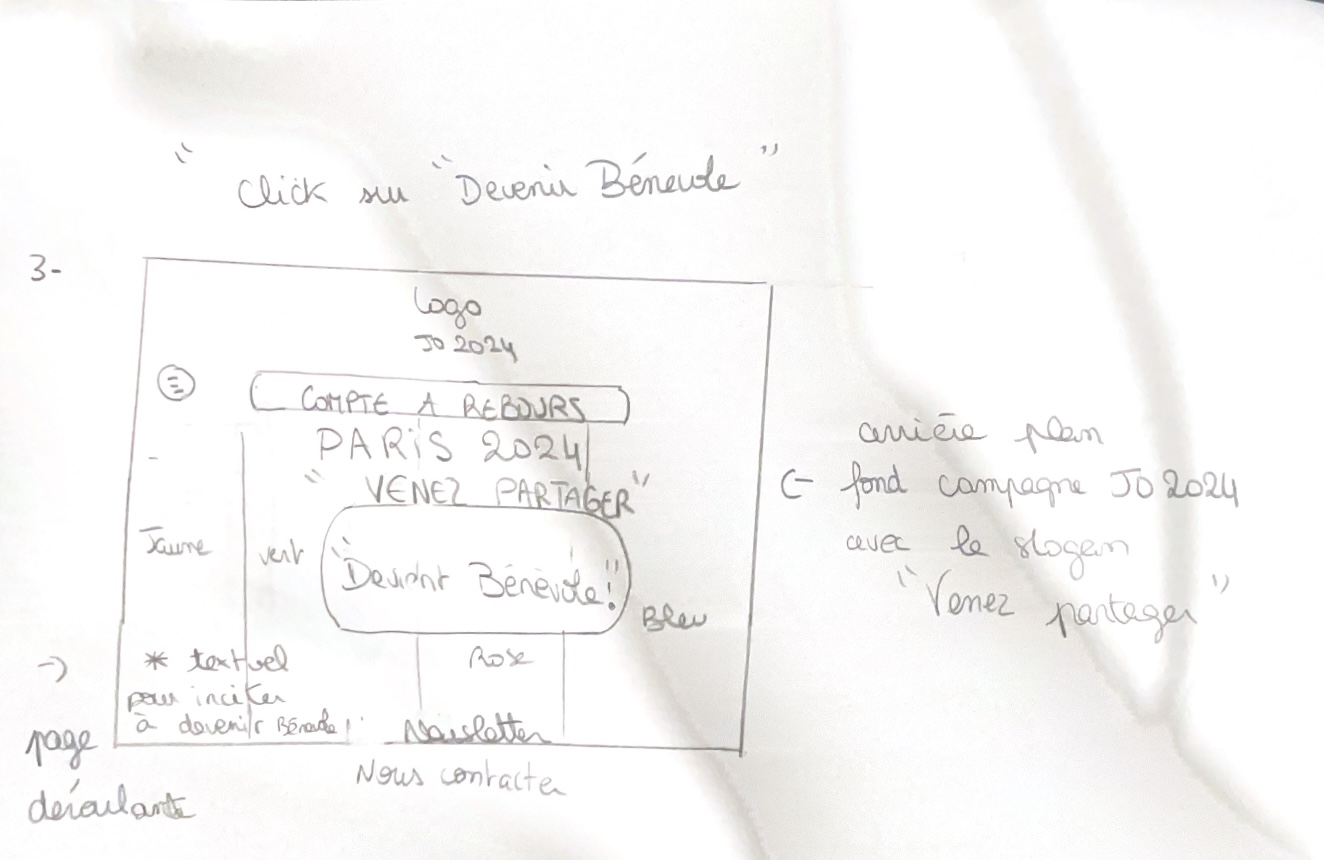 " Click sur "Devenir Bénevole "
3-
Logo
JO 2024
COMPTE A REBOURS
PARIS 2024
" VENEZ PARTAGER "
Jaune
vert
"Bénévole!"
Bleu
Rose
* textuel
pour inciter
à devenir Bénevole !
Newsletter
Nous contacter
→
page
déroulante
arrière plan
← fond campagne JO 2024
avec le slogan
" Venez partager "